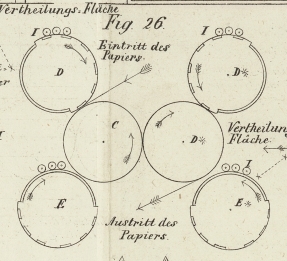 Vertheilungs-Fläche
Fig. 26.
I
I
Eintritt des
Papiers.
D
D*
C
D*
Vertheilun
Fläche.
I
E
E*
Austritt des
Papiers.